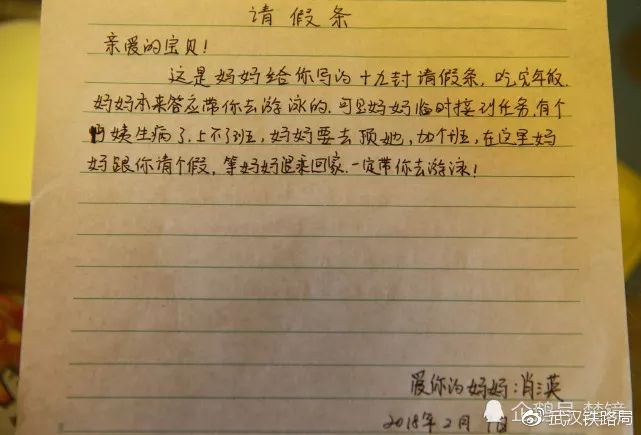 请假条
亲爱的宝贝！
这是妈妈给你写的十九封请假条，吃完年饭，
妈妈本来答应带你去游泳的，可是妈妈临时接到任务，有个
阿姨生病了，上不了班，妈妈要去顶她，加个班，在这里妈
妈跟你请个假，等妈妈退乘回家，一定带你去游泳！
爱你的妈妈：肖三英
2018年2月 日
企鹅号 楚镜
@武汉铁路局